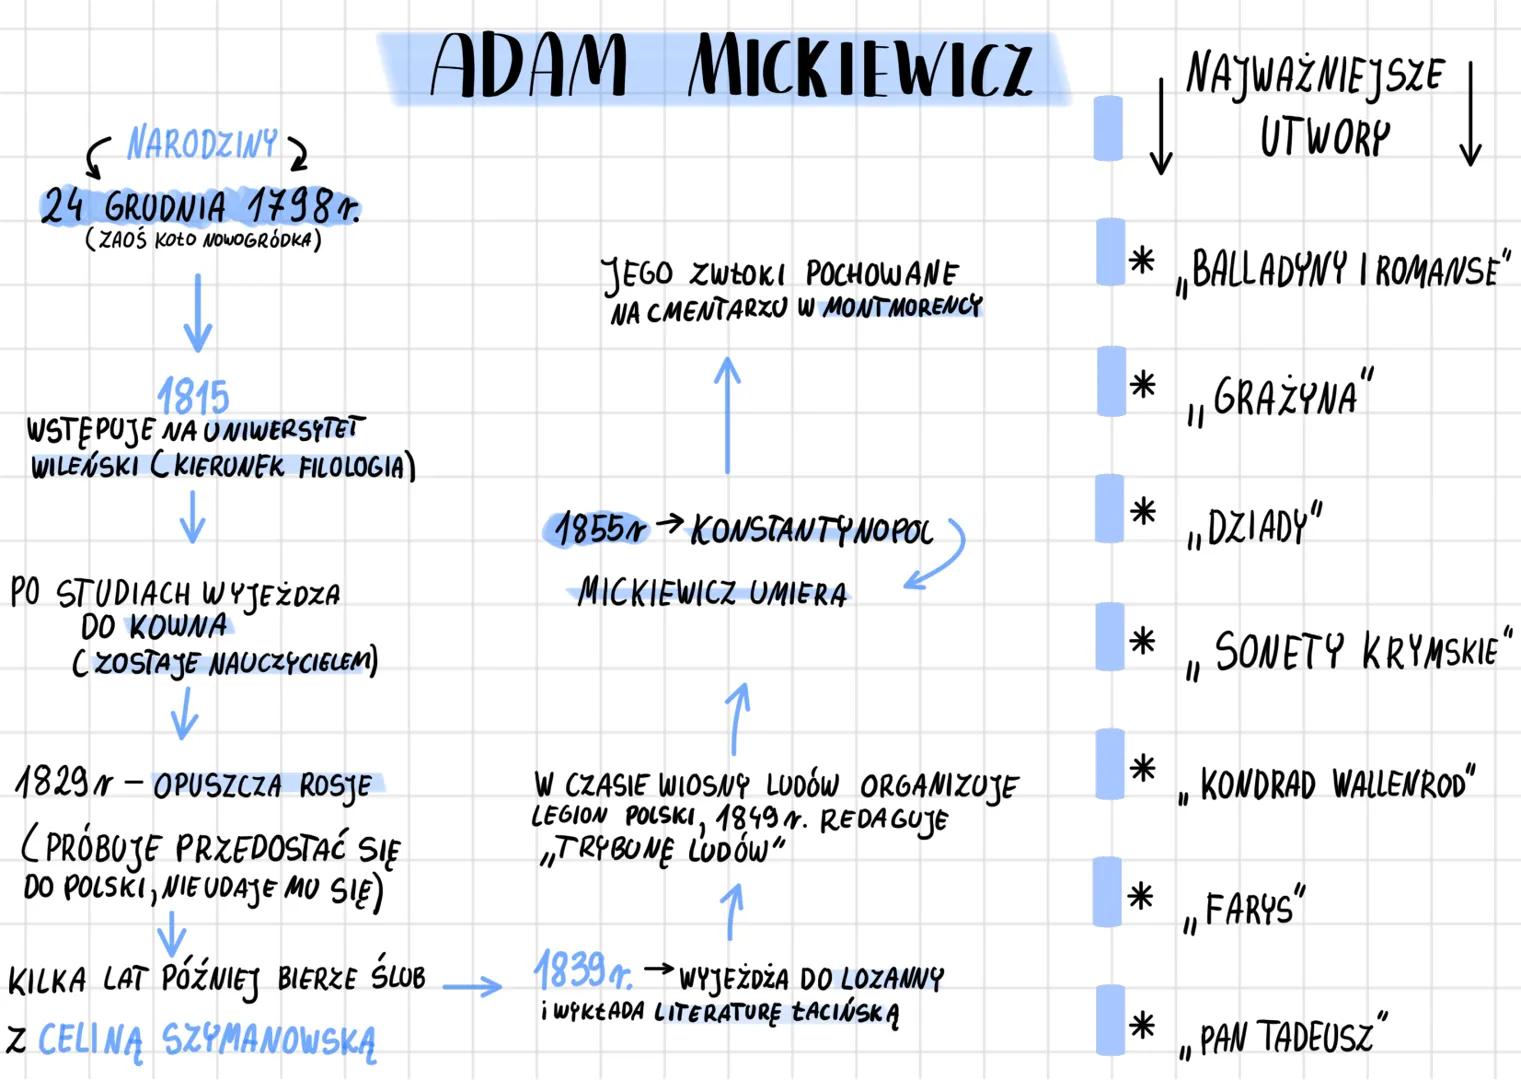 ADAM MICKIEWICZ
NARODZINY
24 GRUDNIA 1798r.
(ZAOŚ KOŁO NOWOGRÓDKA)
1815
WSTĘPUJE NA UNIWERSYTET
WILEŃSKI (KIERUNEK FILOLOGIA)
PO STUDIACH WYJEŻDZA
DO KOWNA
(ZOSTAJE NAUCZYCIELEM)
1829r – OPUSZCZA ROSJE
(PRÓBUJE PRZEDOSTAĆ SIĘ
DO POLSKI, NIE UDAJE MU SIĘ)
KILKA LAT PÓŹNIEJ BIERZE ŚLUB
Z CELINĄ SZYMANOWSKĄ
1839r. → WYJEŻDŻA DO LOZANNY
i WYKŁADA LITERATURĘ ŁACIŃSKĄ
W CZASIE WIOSNY LUDÓW ORGANIZUJE
LEGION POLSKI, 1849r. REDAGUJE
„TRYBUNĘ LUDÓW"
1855r → KONSTANTYNOPOL
MICKIEWICZ UMIERA
JEGO ZWŁOKI POCHOWANE
NA CMENTARZU W MONTMORENCY
NAJWAŻNIEJSZE
UTWORY
* „BALLADYNY I ROMANSE"
* „GRAŻYNA"
* „DZIADY"
* „SONETY KRYMSKIE"
* „KONDRAD WALLENROD"
* „FARYS"
* „PAN TADEUSZ"